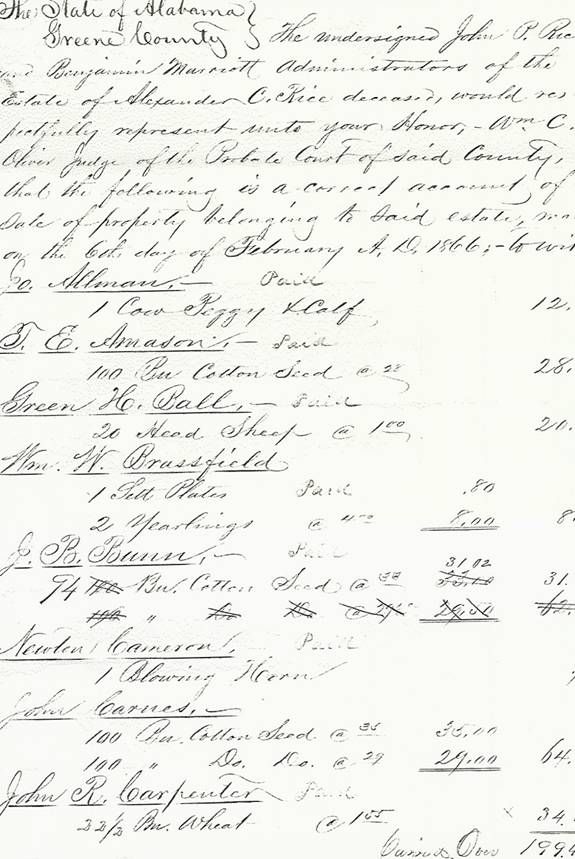 The State of Alabama }
Greene County } The undersigned John P. Rice
and Benjamin Marriott Administrators of the
Estate of Alexander C. Rice deceased, would res
pectfully represent unto your Honor, - Wm C.
Oliver Judge of the Probate Court of said County,
that the following is a correct account of
Sale of property belonging to said estate, ma
on the 6th day of February A. D. 1866; - to wit
Jo. Allman, - Paid
1 Cow Peggy & Calf, 12.
T. E. Amason, - Paid
100 Bu Cotton Seed @ 28 28.
Green H. Ball, - Paid
20 Head Sheep @ 1.00 20.
Wm. W. Brassfield
1 Sett Plates Paid .80
2 Yearlings @ 4.00 8.00 8.
J. B. Bunn, - Paid 31.02
94 100 Bu. Cotton Seed @ 33 33.00 31.
100 " Do. Do. @ 29 29.00 62.
Newton Cameron, Paid
1 Blowing Horn
John Carnes, -
100 Bu. Cotton Seed @ 35 35.00
100 " Do. Do. @ 29 29.00 64.
John R. Carpenter Paid
32 1/2 Bu. Wheat @ 1.05 x 34.
Carried Over 199.